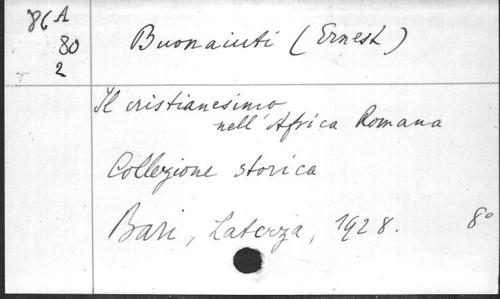 86 A
80
2
Buonaiuti (Ernest)
Il cristianesimo
nell'Africa Romana
Collezione storica
Bari, Laterza, 1928. 8°